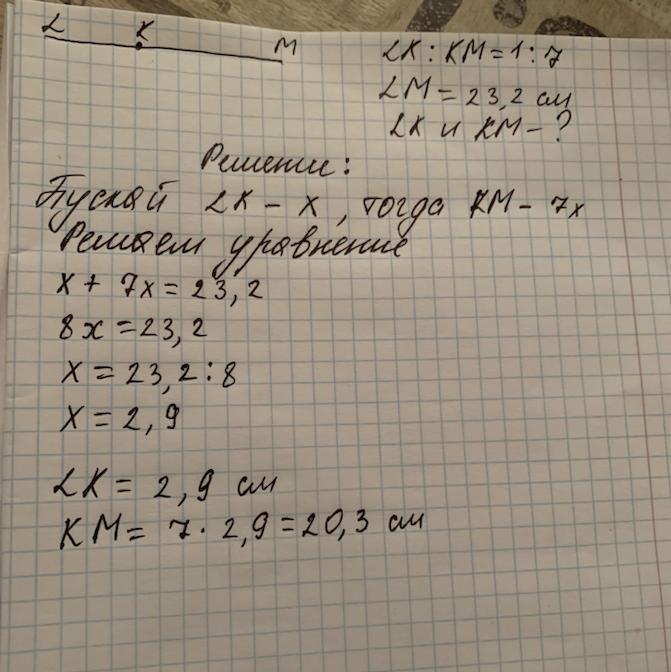 L K M
LK : KM = 1 : 7
LM = 23,2 см
LK и KM - ?
Решение:
Пускай LK - x, тогда KM - 7x
Решаем уравнение
x + 7x = 23,2
8x = 23,2
x = 23,2 : 8
x = 2,9
LK = 2,9 см
KM = 7 · 2,9 = 20,3 см